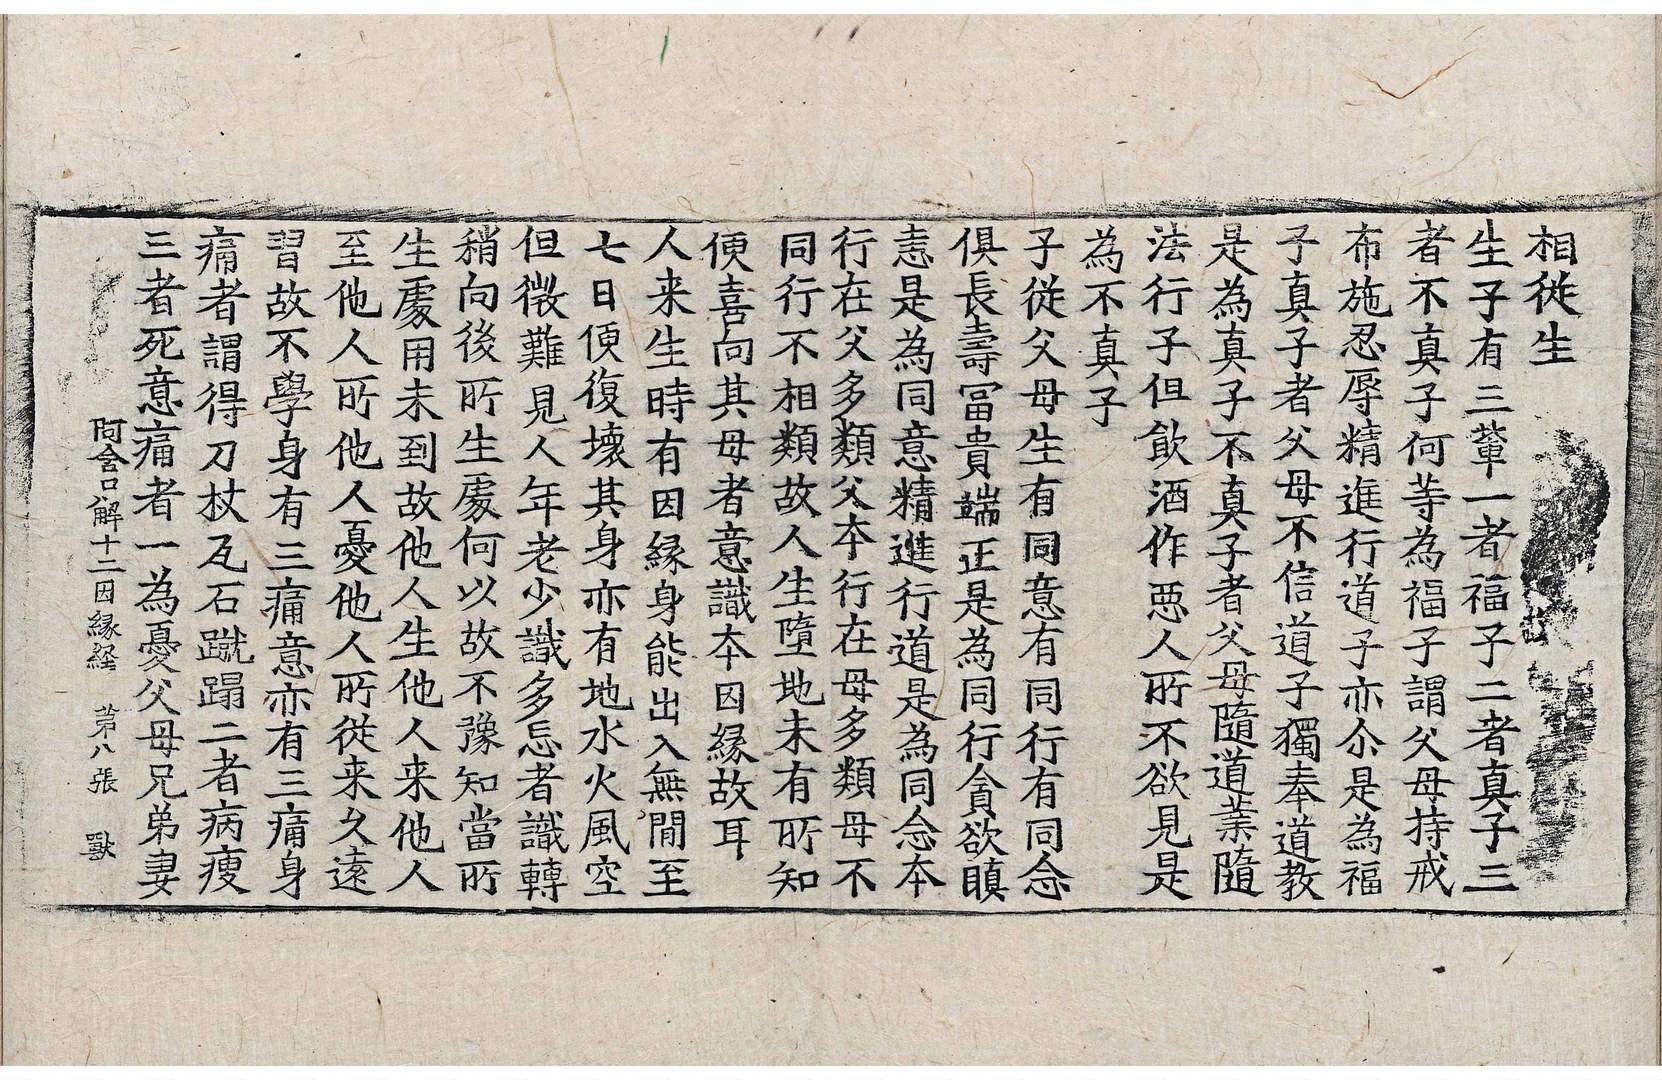 相從生
生子有三輩一者福子二者真子三
者不真子何等為福子謂父母持戒
布施忍辱精進行道子亦尒是為福
子真子者父母不信道子獨奉道教
是為真子不真子者父母隨道業隨
法行子但飲酒作惡人所不欲見是
為不真子
子從父母生有同意有同行有同念
俱長壽冨貴端正是為同行貪欲瞋
恚是為同意精進行道是為同念本
行在父多類父本行在母多類母不
同行不相類故人生墮地未有所知
便喜向其母者意識本因緣故耳
人来生時有因緣身能出入無閒至
七日便復壞其身亦有地水火風空
但微難見人年老少識多忘者識轉
稍向後所生處何以故不豫知當所
生處用未到故他人生他人来他人
至他人所他人憂他人所從来久遠
習故不學身有三痛意亦有三痛身
痛者謂得刀杖瓦石蹴蹋二者病瘦
三者死意痛者一為憂父母兄弟妻
阿含口解十二因緣経 第八張 獸